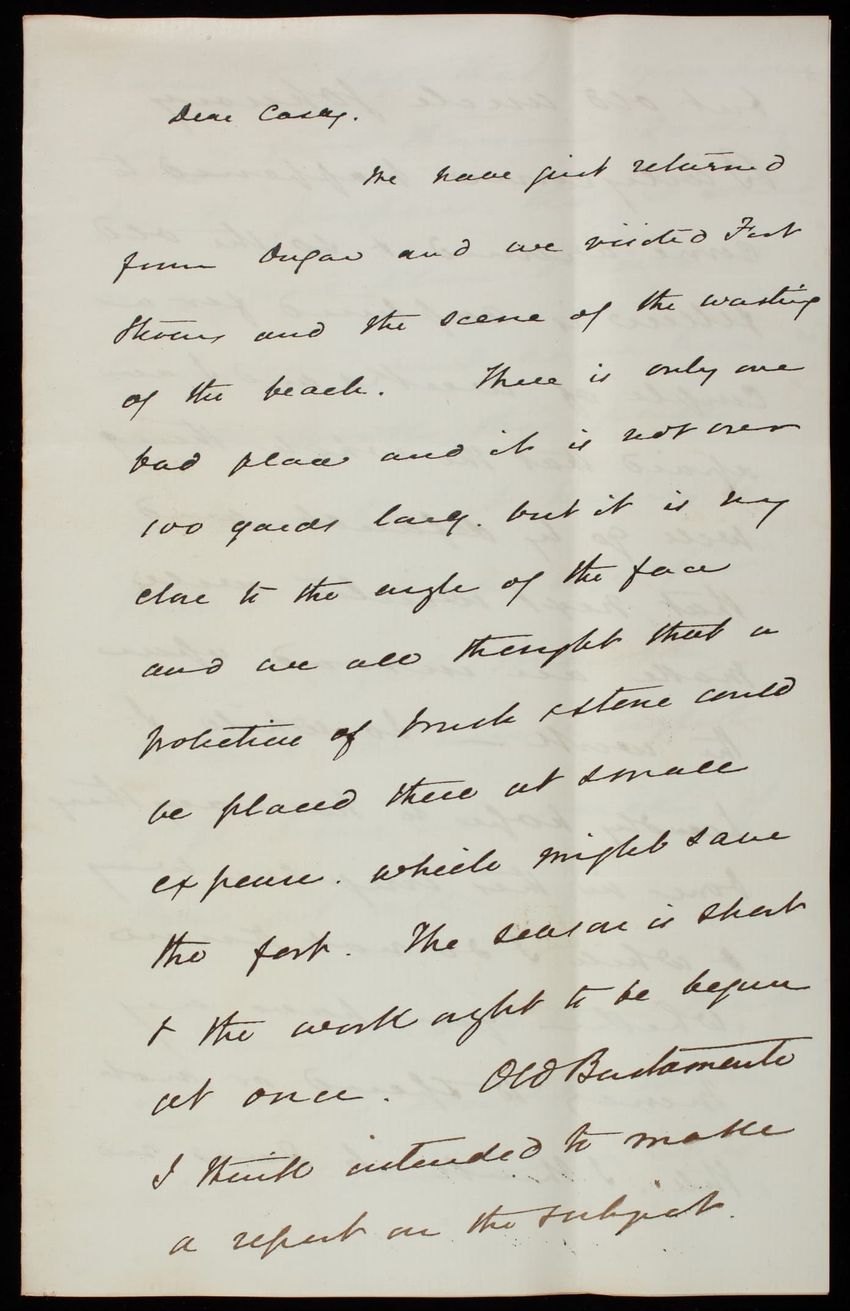 Dear Casey.
We have just returned
from Oregon and we visited Fort
Stevens and the scene of the wasting
of the beach. There is only one
bad place and it is not over
100 yards long. but it is very
close to the angle of the face
and we all thought that a
protection of brush & stone could
be placed there at small
expense. which might save
the fort. The season is short
& the work ought to be begun
at once. Old Bustamente
I think intended to make
a report on the subject.